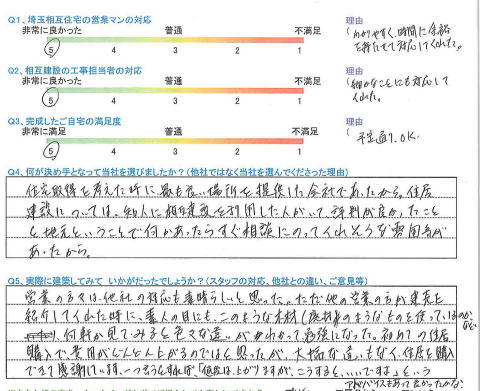 Q1、埼玉相互住宅の営業マンの対応
理由
非常に良かった 普通 不満足
5 4 3 2 1
わかりやすく、時間に余裕
を持たせて対応してくれた。
Q2、相互建設の工事担当者の対応
理由
非常に良かった 普通 不満足
5 4 3 2 1
細かなことにも対応して
くれた。
Q3、完成したご自宅の満足度
理由
非常に満足 普通 不満足
5 4 3 2 1
予定通り、OK
Q4、何が決め手となって当社を選びましたか？(他社ではなく当社を選んでくださった理由)
住宅取得を考えた時に、最も良い場所を提供した会社であったから。住居
建設については、知人に相互建設を利用した人がいて、評判が良かったこと
と地元ということで何かあったらすぐ相談にのってくれそうな雰囲気が
あったから。
Q5、実際に建築してみて いかがだったでしょうか？(スタッフの対応、他社との違い、ご意見等)
営業の方々は他社の対応も素晴らしいと思った。ただ他の営業の方が建売を
紹介してくれた時に、素人の目にも、このような木材(廃材 のようなものを使っている
何軒か見てみると色々な違いがわかって勉強になった。初めての住居
購入で、費用がどんどん上がるのではと思ったが、大幅な違いもなく、住居を購入
できて感謝しています。